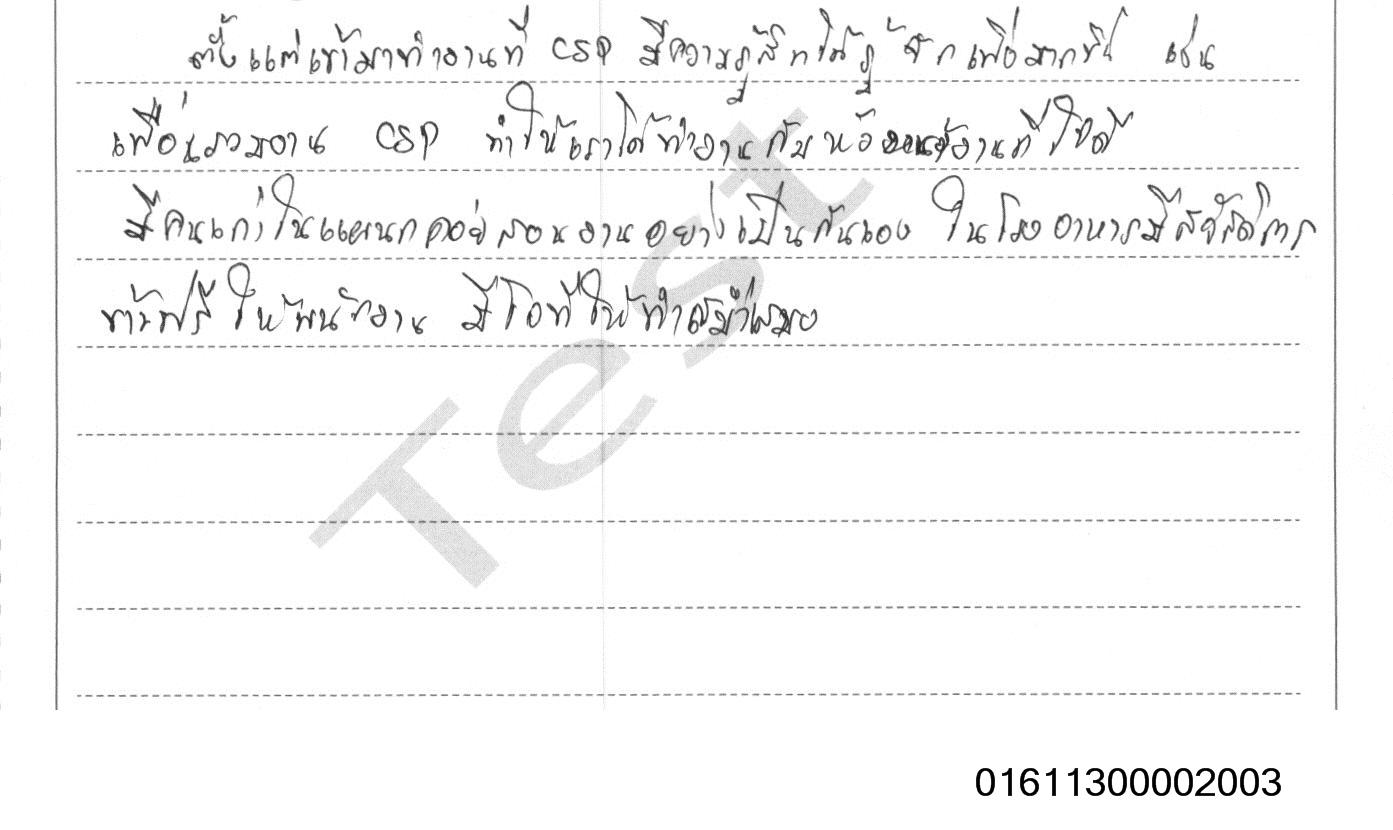 ตั้งแต่เข้ามาทำงานที่ CSP มีความรู้สึกได้รู้จักเพื่อมากขึ้น เช่น
เพื่อนรวมงาน CSP ทำให้เราได้ทำงานกับหัวงานที่ใจดี
มีคนเก่าในแผนกคอยสอนงานอย่างเป็นกันเอง ในโรงอาหารมีสวัสดิการ
ข้าวฟรีให้พนักงาน มีโอทีให้ทำสม่ำเสมอ
Test
01611300002003